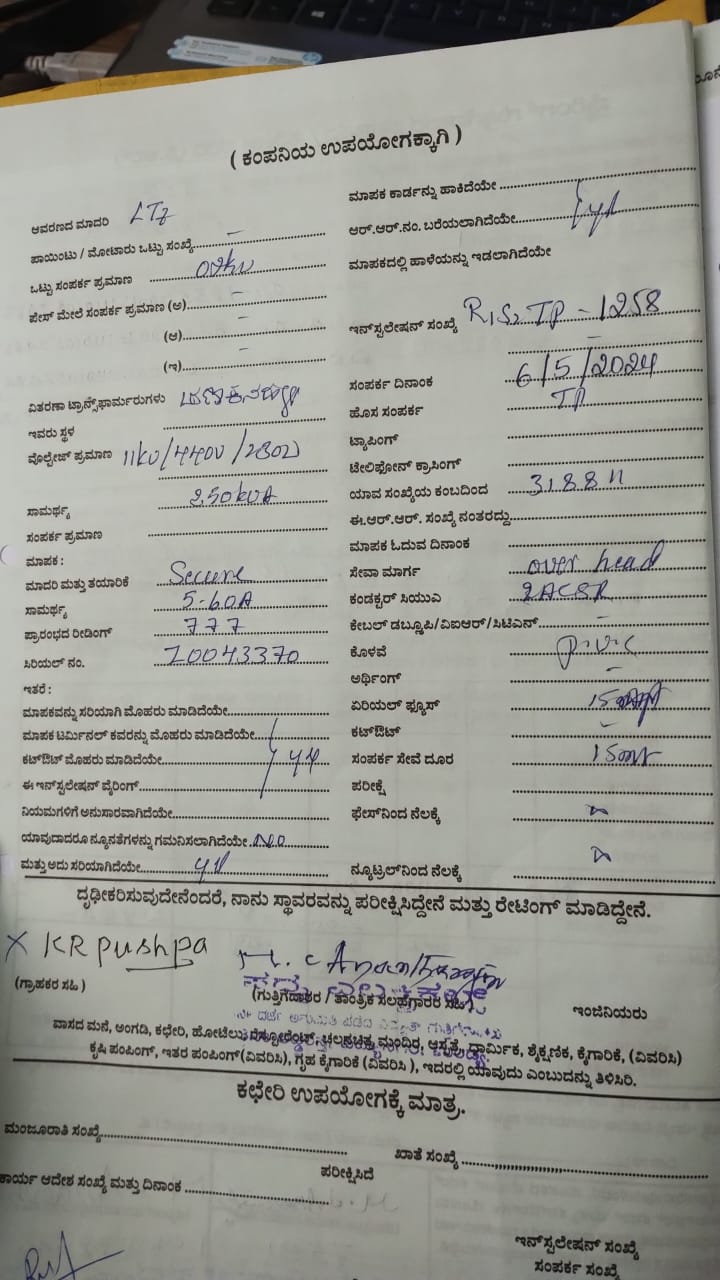 ( ಕಂಪನಿಯ ಉಪಯೋಗಕ್ಕಾಗಿ )
ಆವರಣದ ಮಾದರಿ
ಪಾಯಿಂಟು / ಮೋಟಾರು ಒಟ್ಟು ಸಂಖ್ಯೆ –
ಒಟ್ಟು ಸಂಪರ್ಕ ಪ್ರಮಾಣ
ಪೇಸ್ ಮೇಲೆ ಸಂಪರ್ಕ ಪ್ರಮಾಣ (ಅ) –
(ಆ) –
(ಇ) –
ವಿತರಣಾ ಟ್ರಾನ್ಸ್‌ಫಾರ್ಮರುಗಳು
ಇವರು ಸ್ಥಳ
ವೊಲ್ಟೇಜ್ ಪ್ರಮಾಣ 11kV/440V/230V
ಸಾಮರ್ಥ್ಯ 250kVA
ಸಂಪರ್ಕ ಪ್ರಮಾಣ
ಮಾಪಕ :
ಮಾದರಿ ಮತ್ತು ತಯಾರಿಕೆ Secure
ಸಾಮರ್ಥ್ಯ 5-60A
ಪ್ರಾರಂಭದ ರೀಡಿಂಗ್ 777
ಸಿರಿಯಲ್ ನಂ. 20043370
ಇತರೆ :
ಮಾಪಕವನ್ನು ಸರಿಯಾಗಿ ಮೊಹರು ಮಾಡಿದೆಯೇ
ಮಾಪಕ ಟರ್ಮಿನಲ್ ಕವರನ್ನು ಮೊಹರು ಮಾಡಿದೆಯೇ
ಕಟ್‌ಔಟ್ ಮೊಹರು ಮಾಡಿದೆಯೇ
ಈ ಇನ್‌ಸ್ಟಲೇಷನ್ ವೈರಿಂಗ್
ನಿಯಮಗಳಿಗೆ ಅನುಸಾರವಾಗಿದೆಯೇ
ಯಾವುದಾದರೂ ನ್ಯೂನತೆಗಳನ್ನು ಗಮನಿಸಲಾಗಿದೆಯೇ No
ಮತ್ತು ಅದು ಸರಿಯಾಗಿದೆಯೇ
ಮಾಪಕ ಕಾರ್ಡನ್ನು ಹಾಕಿದೆಯೇ
ಆರ್.ಆರ್.ನಂ. ಬರೆಯಲಾಗಿದೆಯೇ
ಮಾಪಕದಲ್ಲಿ ಹಾಳೆಯನ್ನು ಇಡಲಾಗಿದೆಯೇ
ಇನ್‌ಸ್ಟಲೇಷನ್ ಸಂಖ್ಯೆ R1S2 TP – 1258
ಸಂಪರ್ಕ ದಿನಾಂಕ 6/5/2024
ಹೊಸ ಸಂಪರ್ಕ TP
ಟ್ಯಾಪಿಂಗ್
ಟೇಲಿಫೋನ್ ಕ್ರಾಸಿಂಗ್
ಯಾವ ಸಂಖ್ಯೆಯ ಕಂಬದಿಂದ
ಈ.ಆರ್.ಆರ್. ಸಂಖ್ಯೆ ನಂತರದ್ದು
ಮಾಪಕ ಓದುವ ದಿನಾಂಕ
ಸೇವಾ ಮಾರ್ಗ over head
ಕಂಡಕ್ಟರ್ ಸಿಯುಎ 2ACSR
ಕೇಬಲ್ ಡಬ್ಲೂಪಿ/ವಿಐಆರ್/ಸಿಟಿಎನ್ –
ಕೊಳವೆ p.v.c
ಅರ್ಥಿಂಗ್ –
ಏರಿಯಲ್ ಫ್ಯೂಸ್
ಕಟ್‌ಔಟ್ –
ಸಂಪರ್ಕ ಸೇವೆ ದೂರ
ಪರೀಕ್ಷೆ
ಫೇಸ್‌ನಿಂದ ನೆಲಕ್ಕೆ
ನ್ಯೂಟ್ರಲ್‌ನಿಂದ ನೆಲಕ್ಕೆ
ದೃಢೀಕರಿಸುವುದೇನೆಂದರೆ, ನಾನು ಸ್ಥಾವರವನ್ನು ಪರೀಕ್ಷಿಸಿದ್ದೇನೆ ಮತ್ತು ರೇಟಿಂಗ್ ಮಾಡಿದ್ದೇನೆ.
X KR pushpa
(ಗ್ರಾಹಕರ ಸಹಿ)
(ಗುತ್ತಿಗೆದಾರರ / ತಾಂತ್ರಿಕ ಸಲಹೆಗಾರರ ಸಹಿ)
ಇಂಜಿನಿಯರು
ವಾಸದ ಮನೆ, ಅಂಗಡಿ, ಕಛೇರಿ, ಹೋಟೆಲು ರೆಸ್ಟೋರೆಂಟ್, ಚಲನಚಿತ್ರ ಮಂದಿರ, ಆಸ್ಪತ್ರೆ, ಧಾರ್ಮಿಕ, ಶೈಕ್ಷಣಿಕ, ಕೈಗಾರಿಕೆ, (ವಿವರಿಸಿ)
ಕೃಷಿ ಪಂಪಿಂಗ್, ಇತರ ಪಂಪಿಂಗ್(ವಿವರಿಸಿ), ಗೃಹ ಕೈಗಾರಿಕೆ (ವಿವರಿಸಿ ), ಇದರಲ್ಲಿ ಯಾವುದು ಎಂಬುದನ್ನು ತಿಳಿಸಿರಿ.
ಕಛೇರಿ ಉಪಯೋಗಕ್ಕೆ ಮಾತ್ರ.
ಮಂಜೂರಾತಿ ಸಂಖ್ಯೆ
ಖಾತೆ ಸಂಖ್ಯೆ
ಪರೀಕ್ಷಿಸಿದೆ
ಕಾರ್ಯ ಆದೇಶ ಸಂಖ್ಯೆ ಮತ್ತು ದಿನಾಂಕ
ಇನ್‌ಸ್ಟಲೇಷನ್ ಸಂಖ್ಯೆ
ಸಂಪರ್ಕ ಸಂಖ್ಯೆ